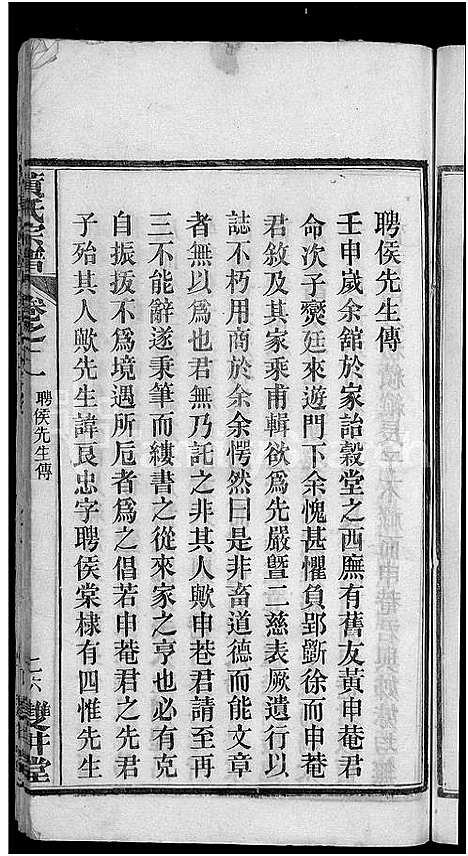 聘侯先生傳
壬申歲余舘於家詒穀堂之西廡有舊友黃申菴君
命次子爕廷來遊門下余愧甚懼負郢斵徐而申菴
君敘及其家乘甫輯欲爲先嚴曁二慈表厥遺行以
誌不朽用商於余余愕然曰是非畜道德而能文章
者無以爲也君無乃託之非其人歟申菴君請至再
三不能辭遂秉筆而縷書之從來家之亨也必有克
自振拔不爲境遇所戹者爲之倡若申菴君之先君
子殆其人歟先生諱良忠字聘侯棠棣有四惟先生
黃氏宗譜
卷之
聘侯先生傳
雙井堂